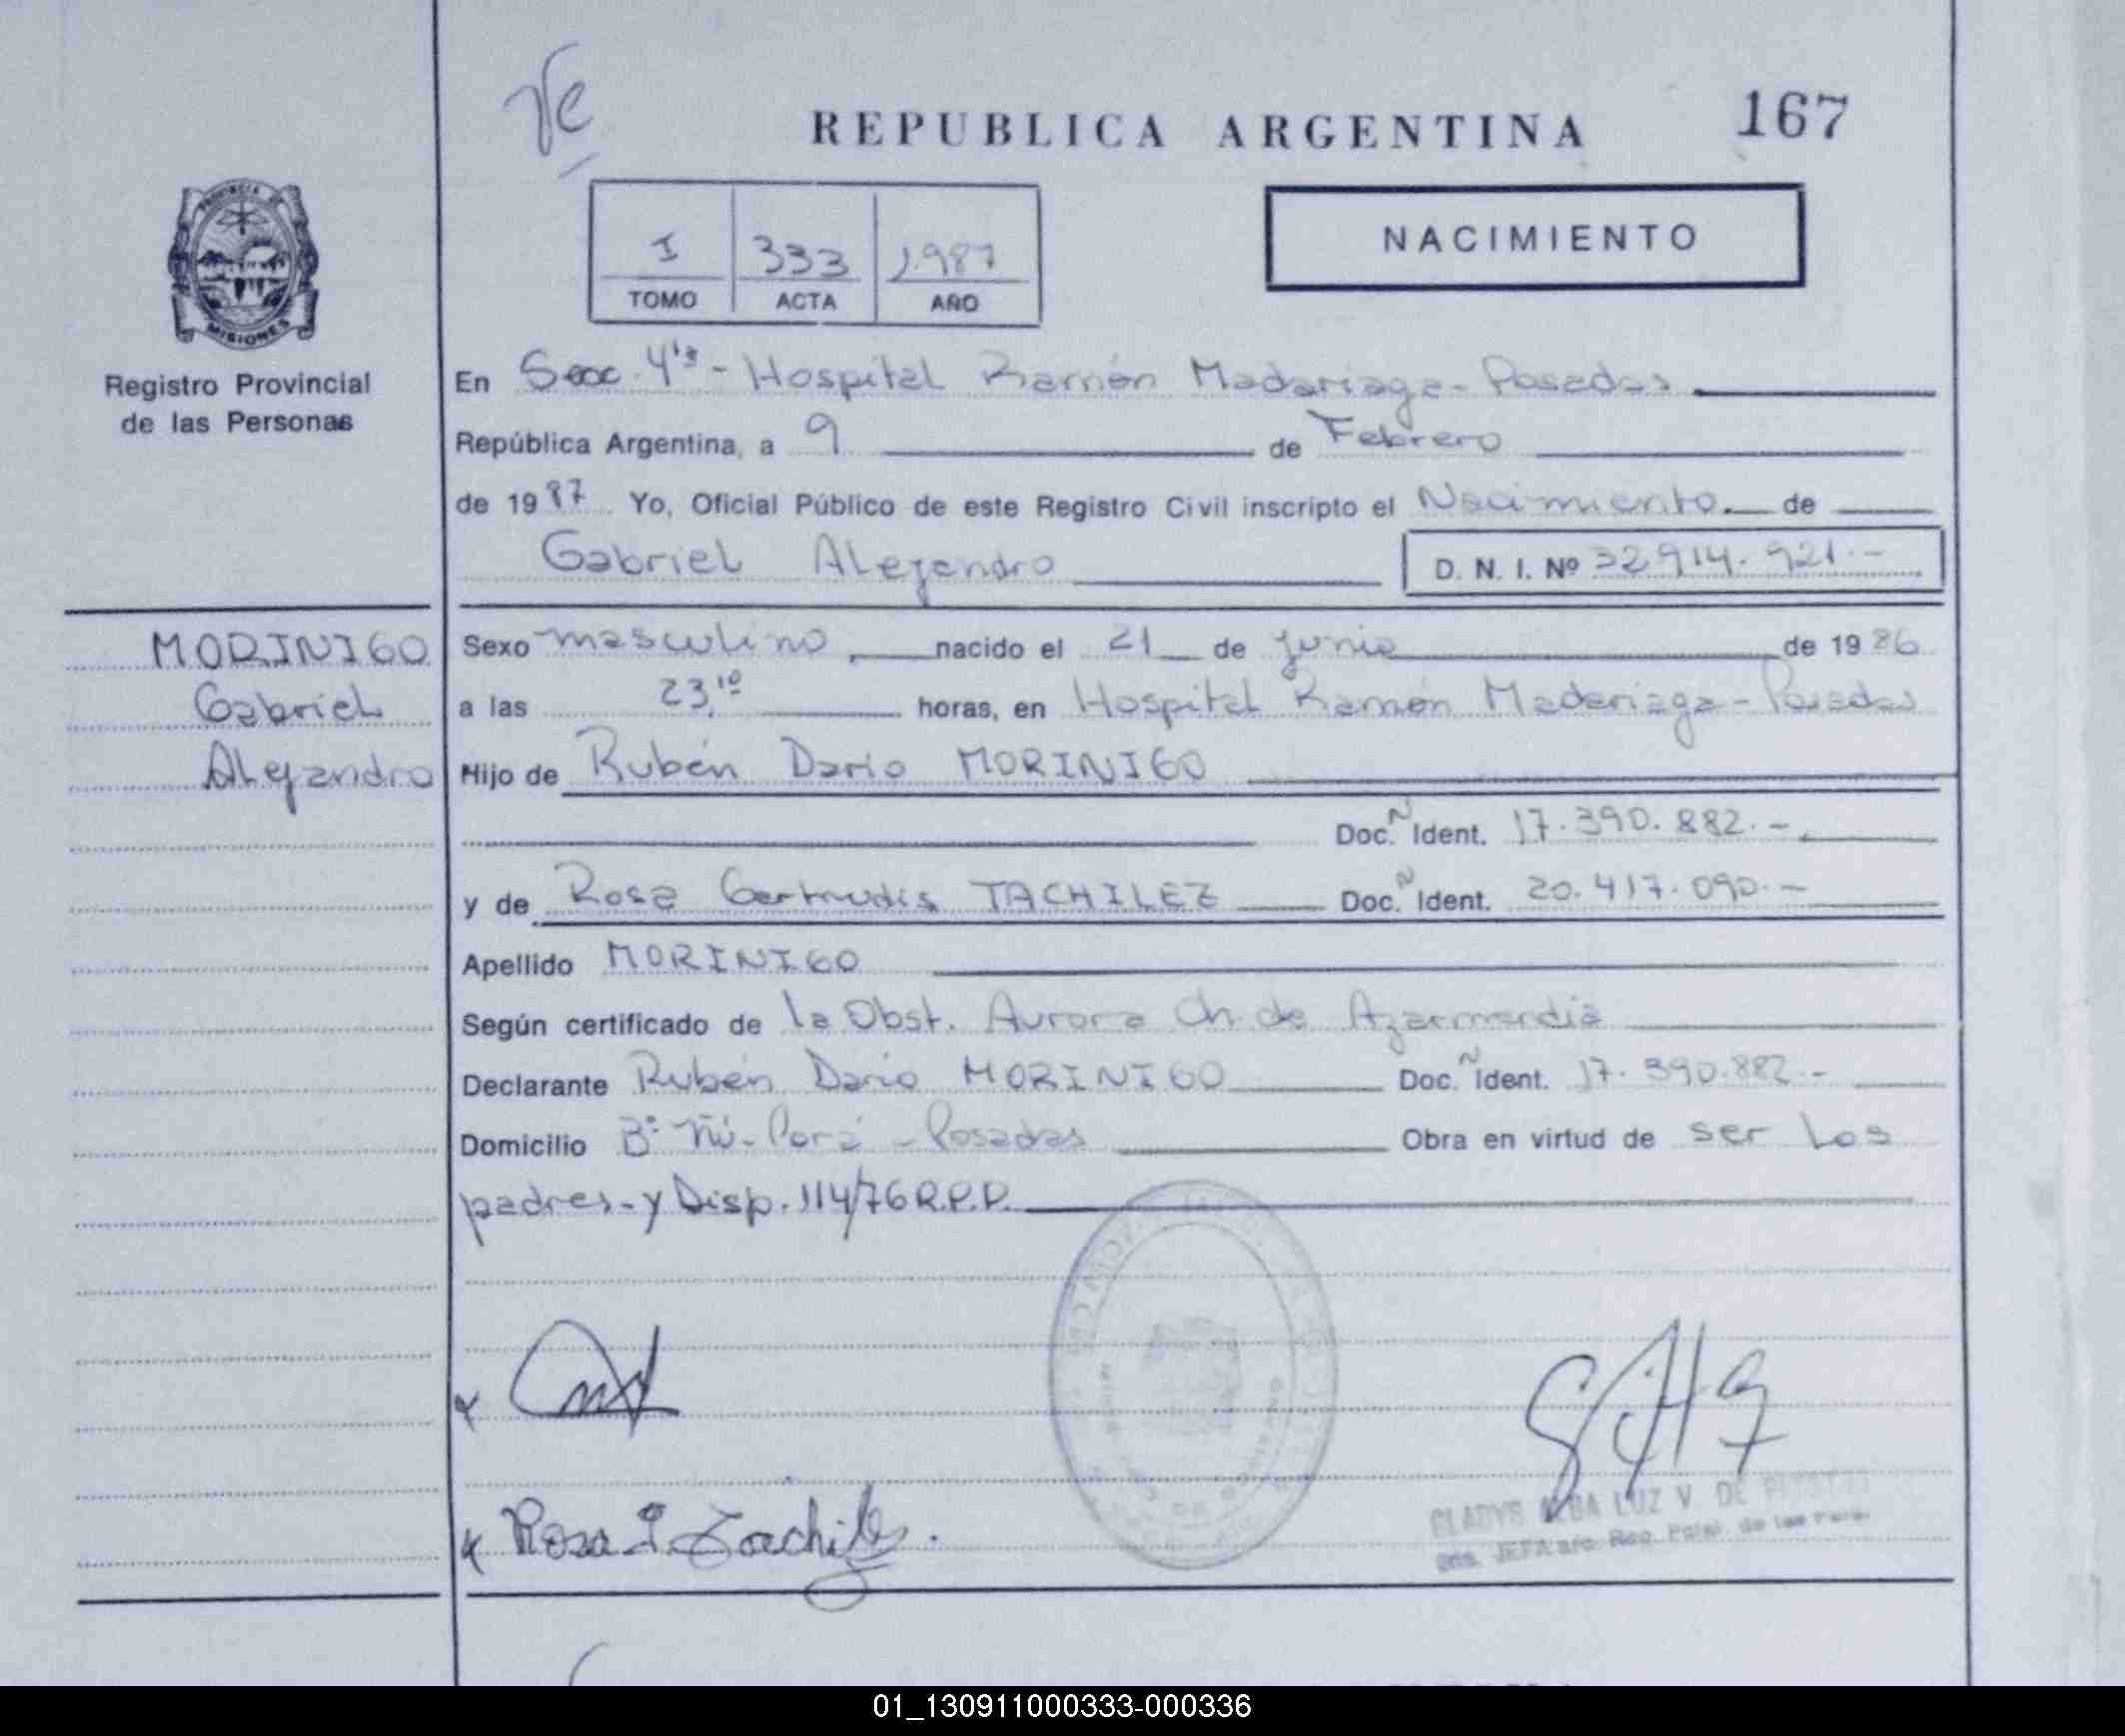 REPUBLICA ARGENTINA 167
NACIMIENTO
I 333 1.987
TOMO ACTA AÑO
PROVINCIA
MISIONES
Registro Provincial
de las Personas
En Secc. 4ta - Hospital Ramón Madariaga - Posadas
República Argentina, a 9 de Febrero
de 1987 Yo, Oficial Público de este Registro Civil inscripto el Nacimiento. de
Gabriel Alejandro D. N. I. Nº 32.914.921.-
MORINIGO
Gabriel
Alejandro
Sexo masculino, nacido el 21 de junio de 1986
a las 23,10 horas, en Hospital Ramón Madariaga - Posadas
Hijo de Rubén Darío MORINIGO
Doc. N Ident. 17.390.882.-
y de Rosa Gertrudis TACHILEZ Doc. N Ident. 20.417.090.-
Apellido MORINIGO
Según certificado de la Obst. Aurora Ch. de Azarmendia
Declarante Rubén Darío MORINIGO Doc. N Ident. 17.390.882.-
Domicilio B° Ñú-Porá - Posadas Obra en virtud de ser los
padres - y Disp. 114/76 R.P.P.
Rosa G. Tachilez.
GLADYS ALBA LUZ V. DE
JEFA Reg. de las Pers.
01_130911000333-000336